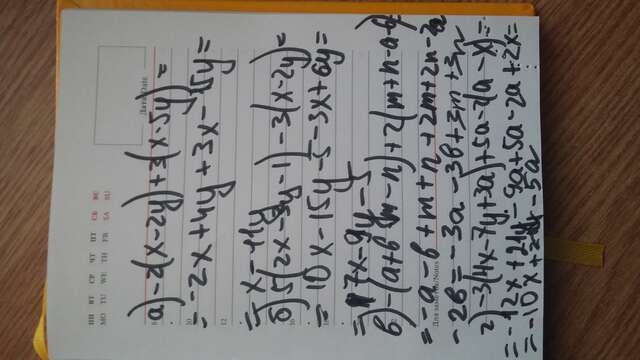 ПН ВТ СР ЧТ ПТ СБ ВС
MO TU WE TH FR SA SU
Дата/Date
а) -2(x-2y)+3(x-5y)=
=-2x+4y+3x-15y=
=x-11y
б) 5(2x-3y-1)-3(x-2y)=
=10x-15y-5-3x+6y=
=7x-9y-5
в) -(a+b-m-n)+2(m+n-a-b)=
=-a-b+m+n+2m+2n-2a
-2b=-3a-3b+3m+3n
г) -3(4x-7y+3a)+5a-2(a-x)=
=-12x+21y-9a+5a-2a+2x=
=-10x+21y-5a
Для заметок/Notes